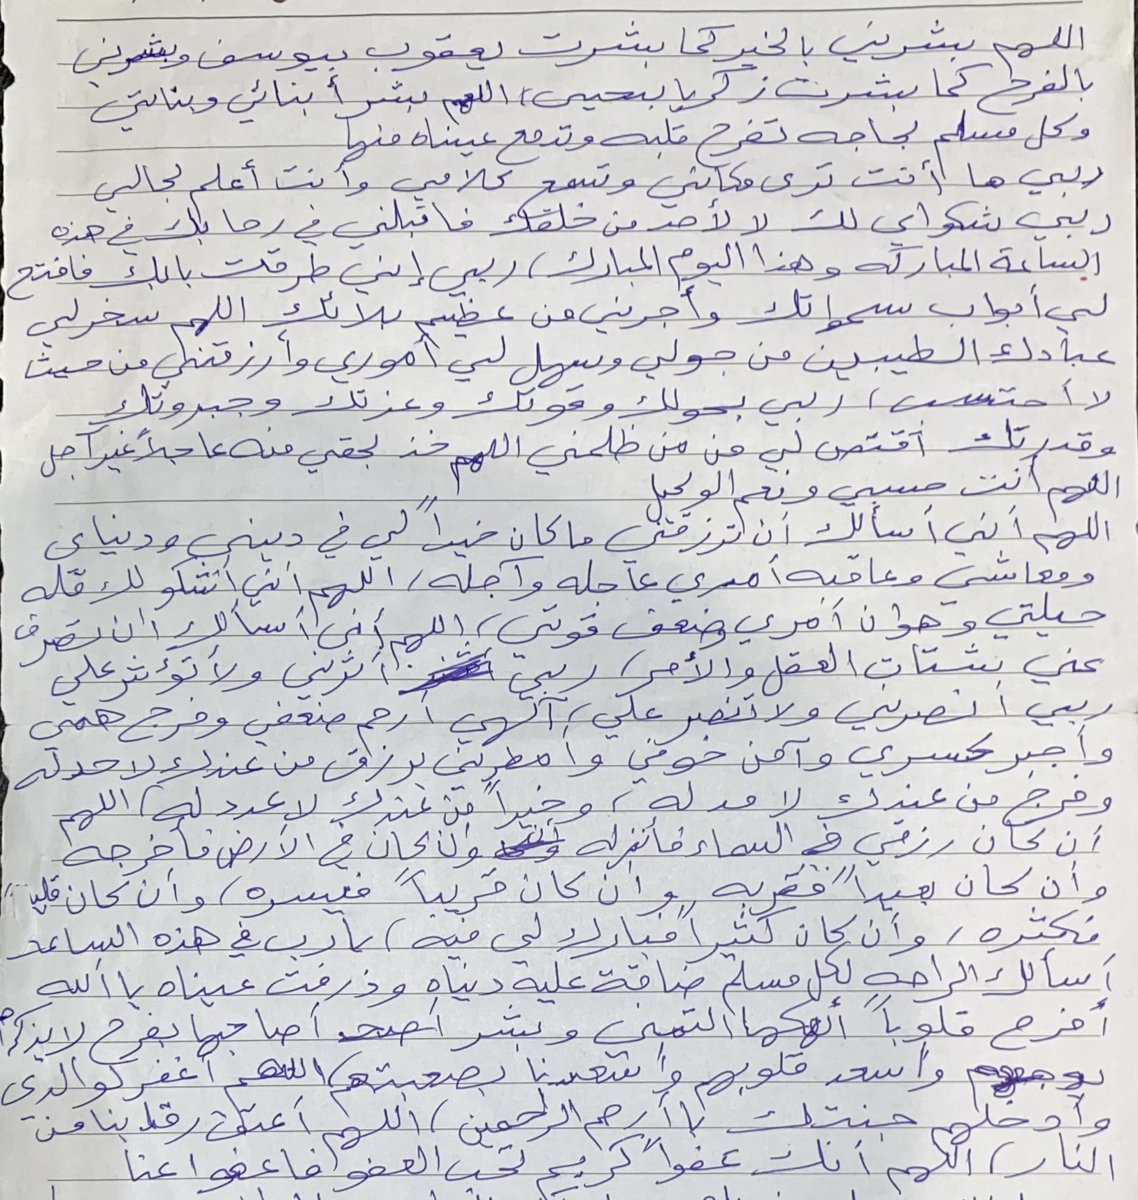 اللهم بشرني بالخير كما بشرت يعقوب بيوسف وبشرني
بالفرح كما بشرت زكريا بيحيى، اللهم بشر أبنائي وبناتي
وكل مسلم بحاجه تفرح قلبه وتدمع عيناه منها
ربي ها أنت ترى مكاني وتسمع كلامي وأنت أعلم بحالي
ربي شكواي لك لا لأحد من خلقك فاقبلني في رحابك في هذه
الساعة المباركه وهذا اليوم المبارك، ربي إني طرقت بابك فافتح
لي أبواب سمواتك وأجرني من عظيم بلائك اللهم سخر لي
عبادك الطيبين من حولي وسهل لي أموري وأرزقني من حيث
لا أحتسب، ربي بحولك وقوتك وعزتك وجبروتك
وقدرتك أقتص لي من من ظلمني اللهم خذ بحقي منه عاجلاً غير آجل
اللهم أنت حسبي ونعم الوكيل
اللهم أني أسألك أن ترزقني ما كان خيراً لي في ديني ودنياي
ومعاشي وعاقبه أمري عاجله وآجله، اللهم أني أشكو لك قله
حيلتي وهوان أمري وضعف قوتي، اللهم أني أسألك أن تصرف
عني شتات العقل والأمر، ربي أثرني ولا تؤثر علي
ربي أنصرني ولا تنصر علي، آلهي أرحم ضعفي وفرج همي
وأجبر كسري وآمن خوفي وأمطرني برزق من عندك لا حد له
وفرج من عندك لا مد له، وخيراً من عندك لا عدد له، اللهم
أن كان رزقي في السماء فأنزله وأن كان في الأرض فأخرجه
وأن كان بعيداً فقربه وأن كان قريباً فيسره، وأن كان قليلاً
فكثره، وأن كان كثيراً فبارك لي فيه، يا رب في هذه الساعه
أسألك الراحه لكل مسلم ضاقة عليه دنياه وذرفت عيناه يا الله
أفرح قلوباً أنهكها التمني وبشر أصاحبها بفرح لا يذكرهم
بوجعهم وأسعد قلوبهم وأسعدنا بصحبتهم اللهم أغفر لوالدي
وأدخلهم جنتك يا أرحم الراحمين، اللهم أعتق رقابنا من
النار، اللهم أنك عفواً كريم تحب العفو فاعفوا عنا